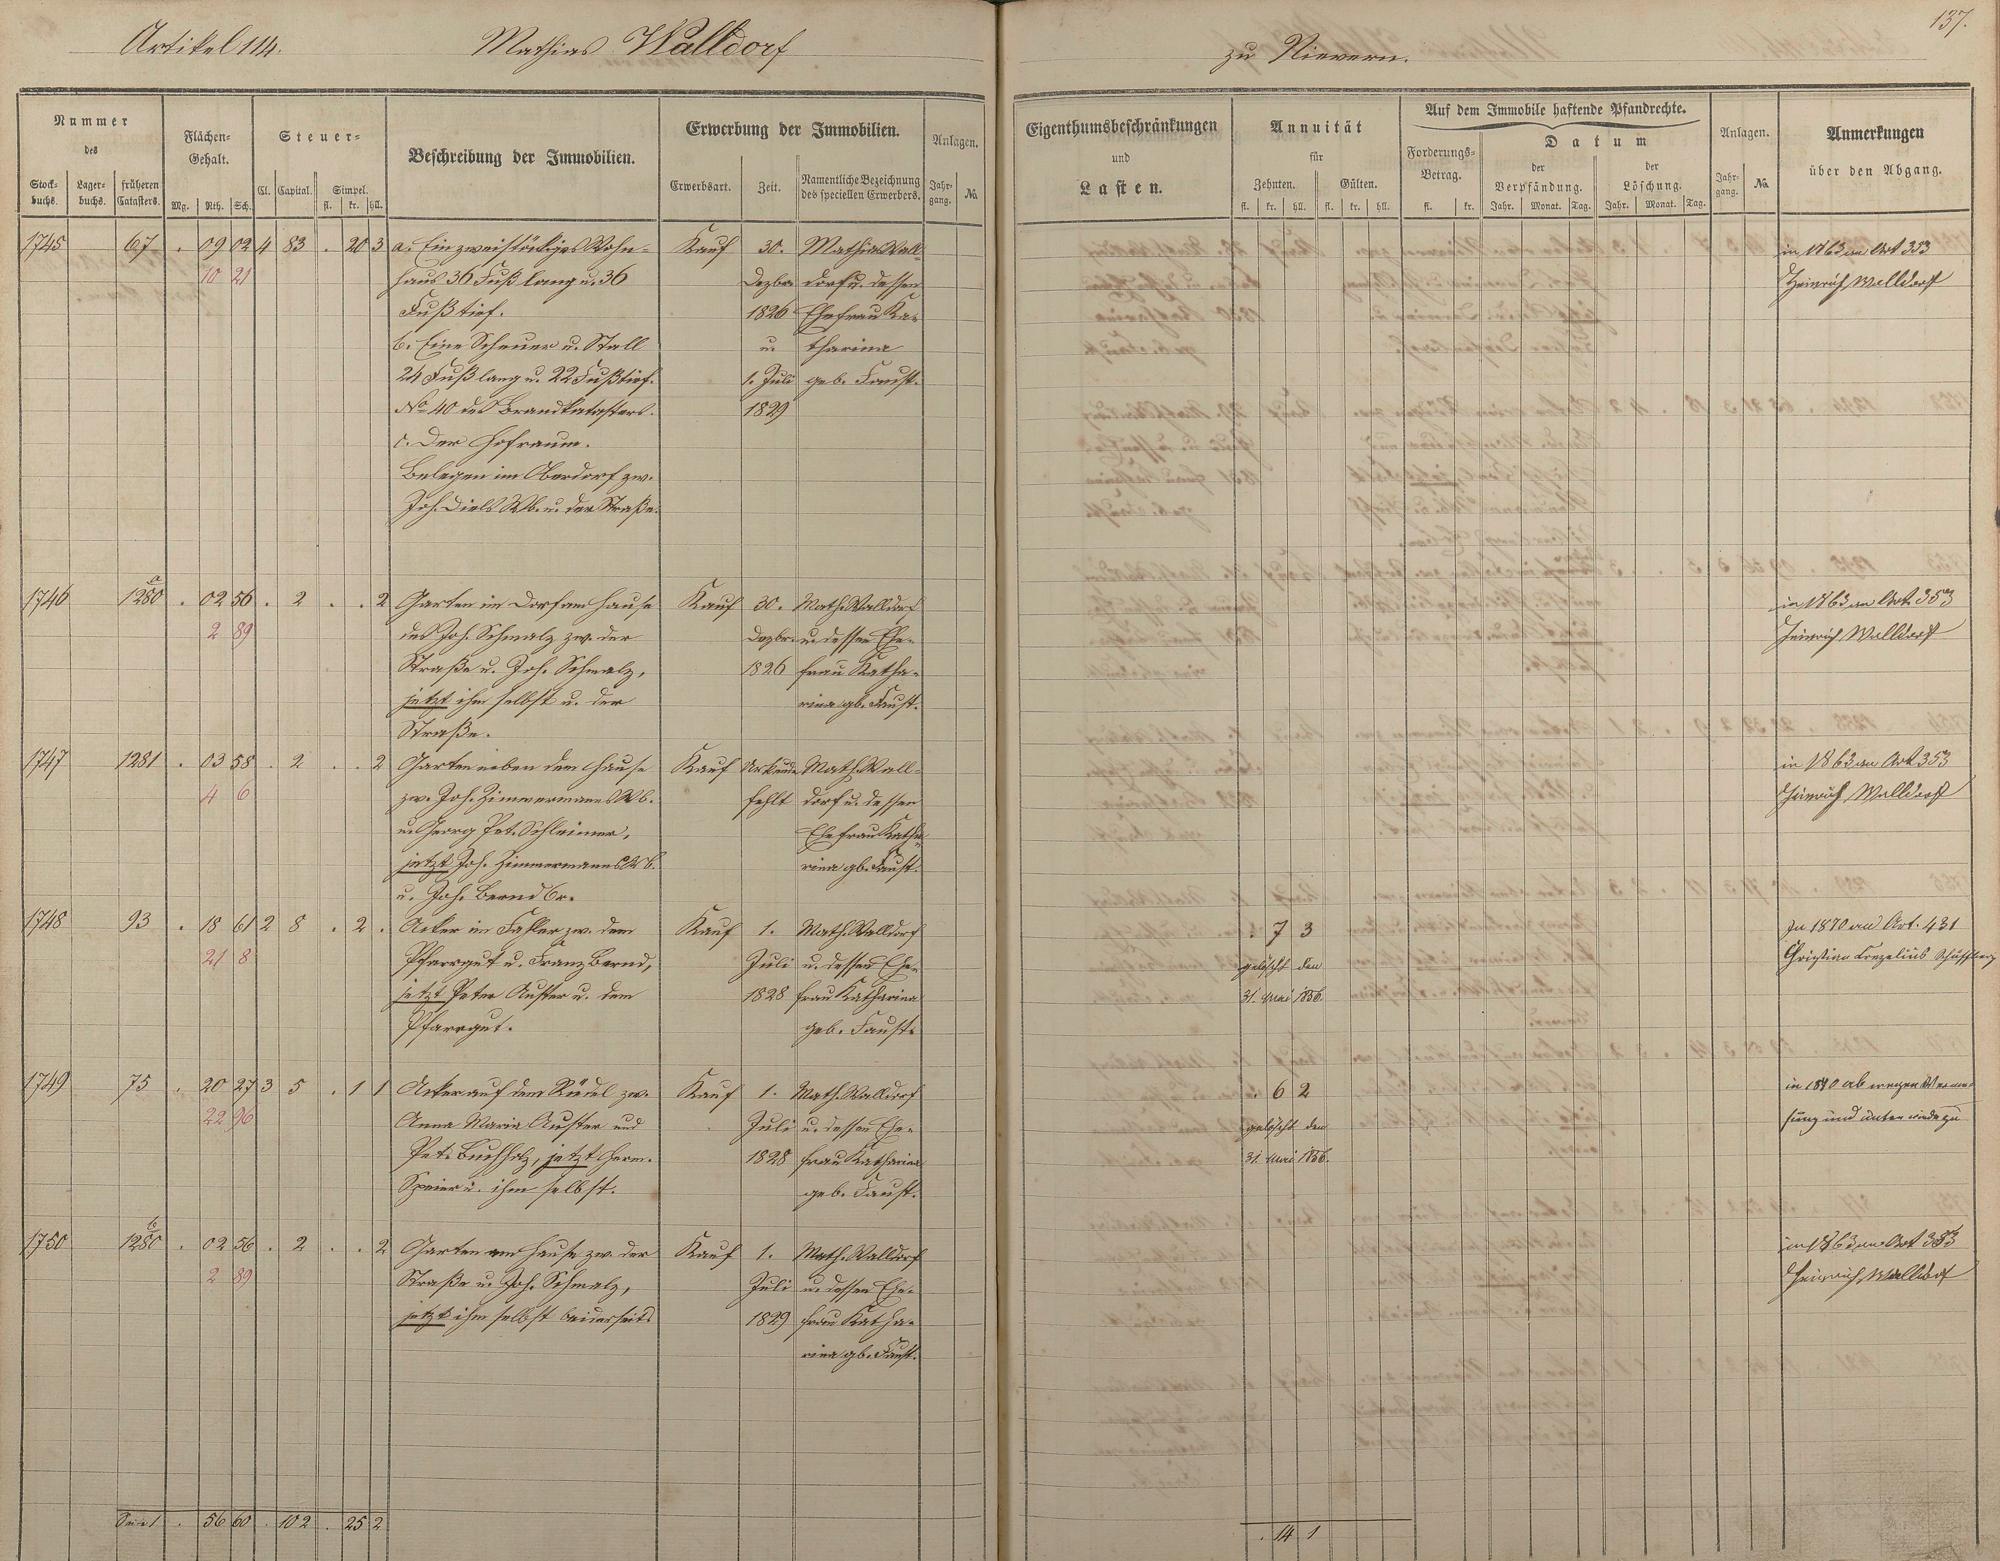 Artikel 114. Mathias Walldorf zu Nievern. 137.
Nummer des
Stock-buchs. Lager-buchs. früheren Catasters.
Flächen-Gehalt.
Mg. Rth. Sch.
Steuer-
Cl. Capital. Simpel.
fl. kr. hll.
Beschreibung der Immobilien.
Erwerbung der Immobilien.
Erwerbsart. Zeit. Namentliche Bezeichnung des speciellen Erwerbers.
Anlagen.
Jahr-gang. No.
Eigenthumsbeschränkungen und Lasten.
Annuität für
Zehnten. Gülten.
fl. kr. hll. fl. kr. hll.
Auf dem Immobile haftende Pfandrechte.
Forderungs-Betrag.
fl. kr.
Datum
der Verpfändung. der Löschung.
Jahr. Monat. Tag. Jahr. Monat. Tag.
Anlagen.
Jahr-gang. No.
Anmerkungen über den Abgang.
1745 67 . 09 02 4 83 . 20 3 a. Ein zweistöckiges Wohn- Kauf 30. Mathias Wall- in 1863 an Art 353
10 21 haus 36 Fuß lang u. 36 Dezbr. dorf u. dessen Heinrich Walldorf
Fuß tief. 1826 Ehefrau Ka-
b. Eine Scheuer u. Stall u. tharina
24 Fuß lang u. 22 Fuß tief. 1. Juli geb. Faust.
No 40 des Brandkatasters. 1829
c. Der Hofraum.
Belegen im Oberdorf zw.
Joh. Diels Wb. u. der Straße.
1746 1280 a . 02 56 . 2 . . 2 Garten im Dorf am Hause Kauf 30. Math. Walldorf in 1863 an Art. 353
2 89 des Joh. Schmalz zw. der Dezbr. u. dessen Ehe- Heinrich Walldorf
Straße u. Joh. Schmalz, 1826 frau Katha-
jetzt ihm selbst u. der rina gb. Faust.
Straße.
1747 1281 . 03 58 . 2 . . 2 Garten neben dem Hause Kauf Urkunde Math. Wall- in 1863 an Art 353
4 6 zw. Joh. Zimmermanns Wb. fehlt dorf u. dessen Heinrich Walldorf
u. Georg Pet. Schleimer, Ehefrau Katha-
jetzt Joh. Zimmermanns Wb. rina gb. Faust.
u. Joh. Bernd 6r.
1748 93 . 18 61 2 8 . 2 . Acker im zw. dem Kauf 1. Math. Walldorf . 7 3 In 1870 an Art. 431
21 8 Pfarrgut u. Franz Bernd, Juli u. dessen Ehe- gelöscht den Christian
jetzt Peter Auster u. dem 1828 frau Katharina 31. Mai 1856.
Pfarrgut. geb. Faust.
1749 75 . 20 27 3 5 . 1 1 Acker auf dem zw. Kauf 1. Math. Walldorf . 6 2 in 1870 ab wegen
22 96 Anna Maria Auster und Juli u. dessen Ehe- gelöscht den und unter
Pet. Buchholz, jetzt Herm. 1828 frau Katharina 31. Mai 1856.
Speier u. ihm selbst. geb. Faust.
1750 1280 b . 02 56 . 2 . . 2 Garten am Hause zw. der Kauf 1. Math. Walldorf in 1863 an Art 353
2 89 Straße u. Joh. Schmalz, Juli u. dessen Ehe- Heinrich Walldorf
jetzt ihm selbst beiderseits 1829 frau Katha-
rina gb. Faust.
Seite 1 . 56 60 . 102 . 25 2 . 14 1